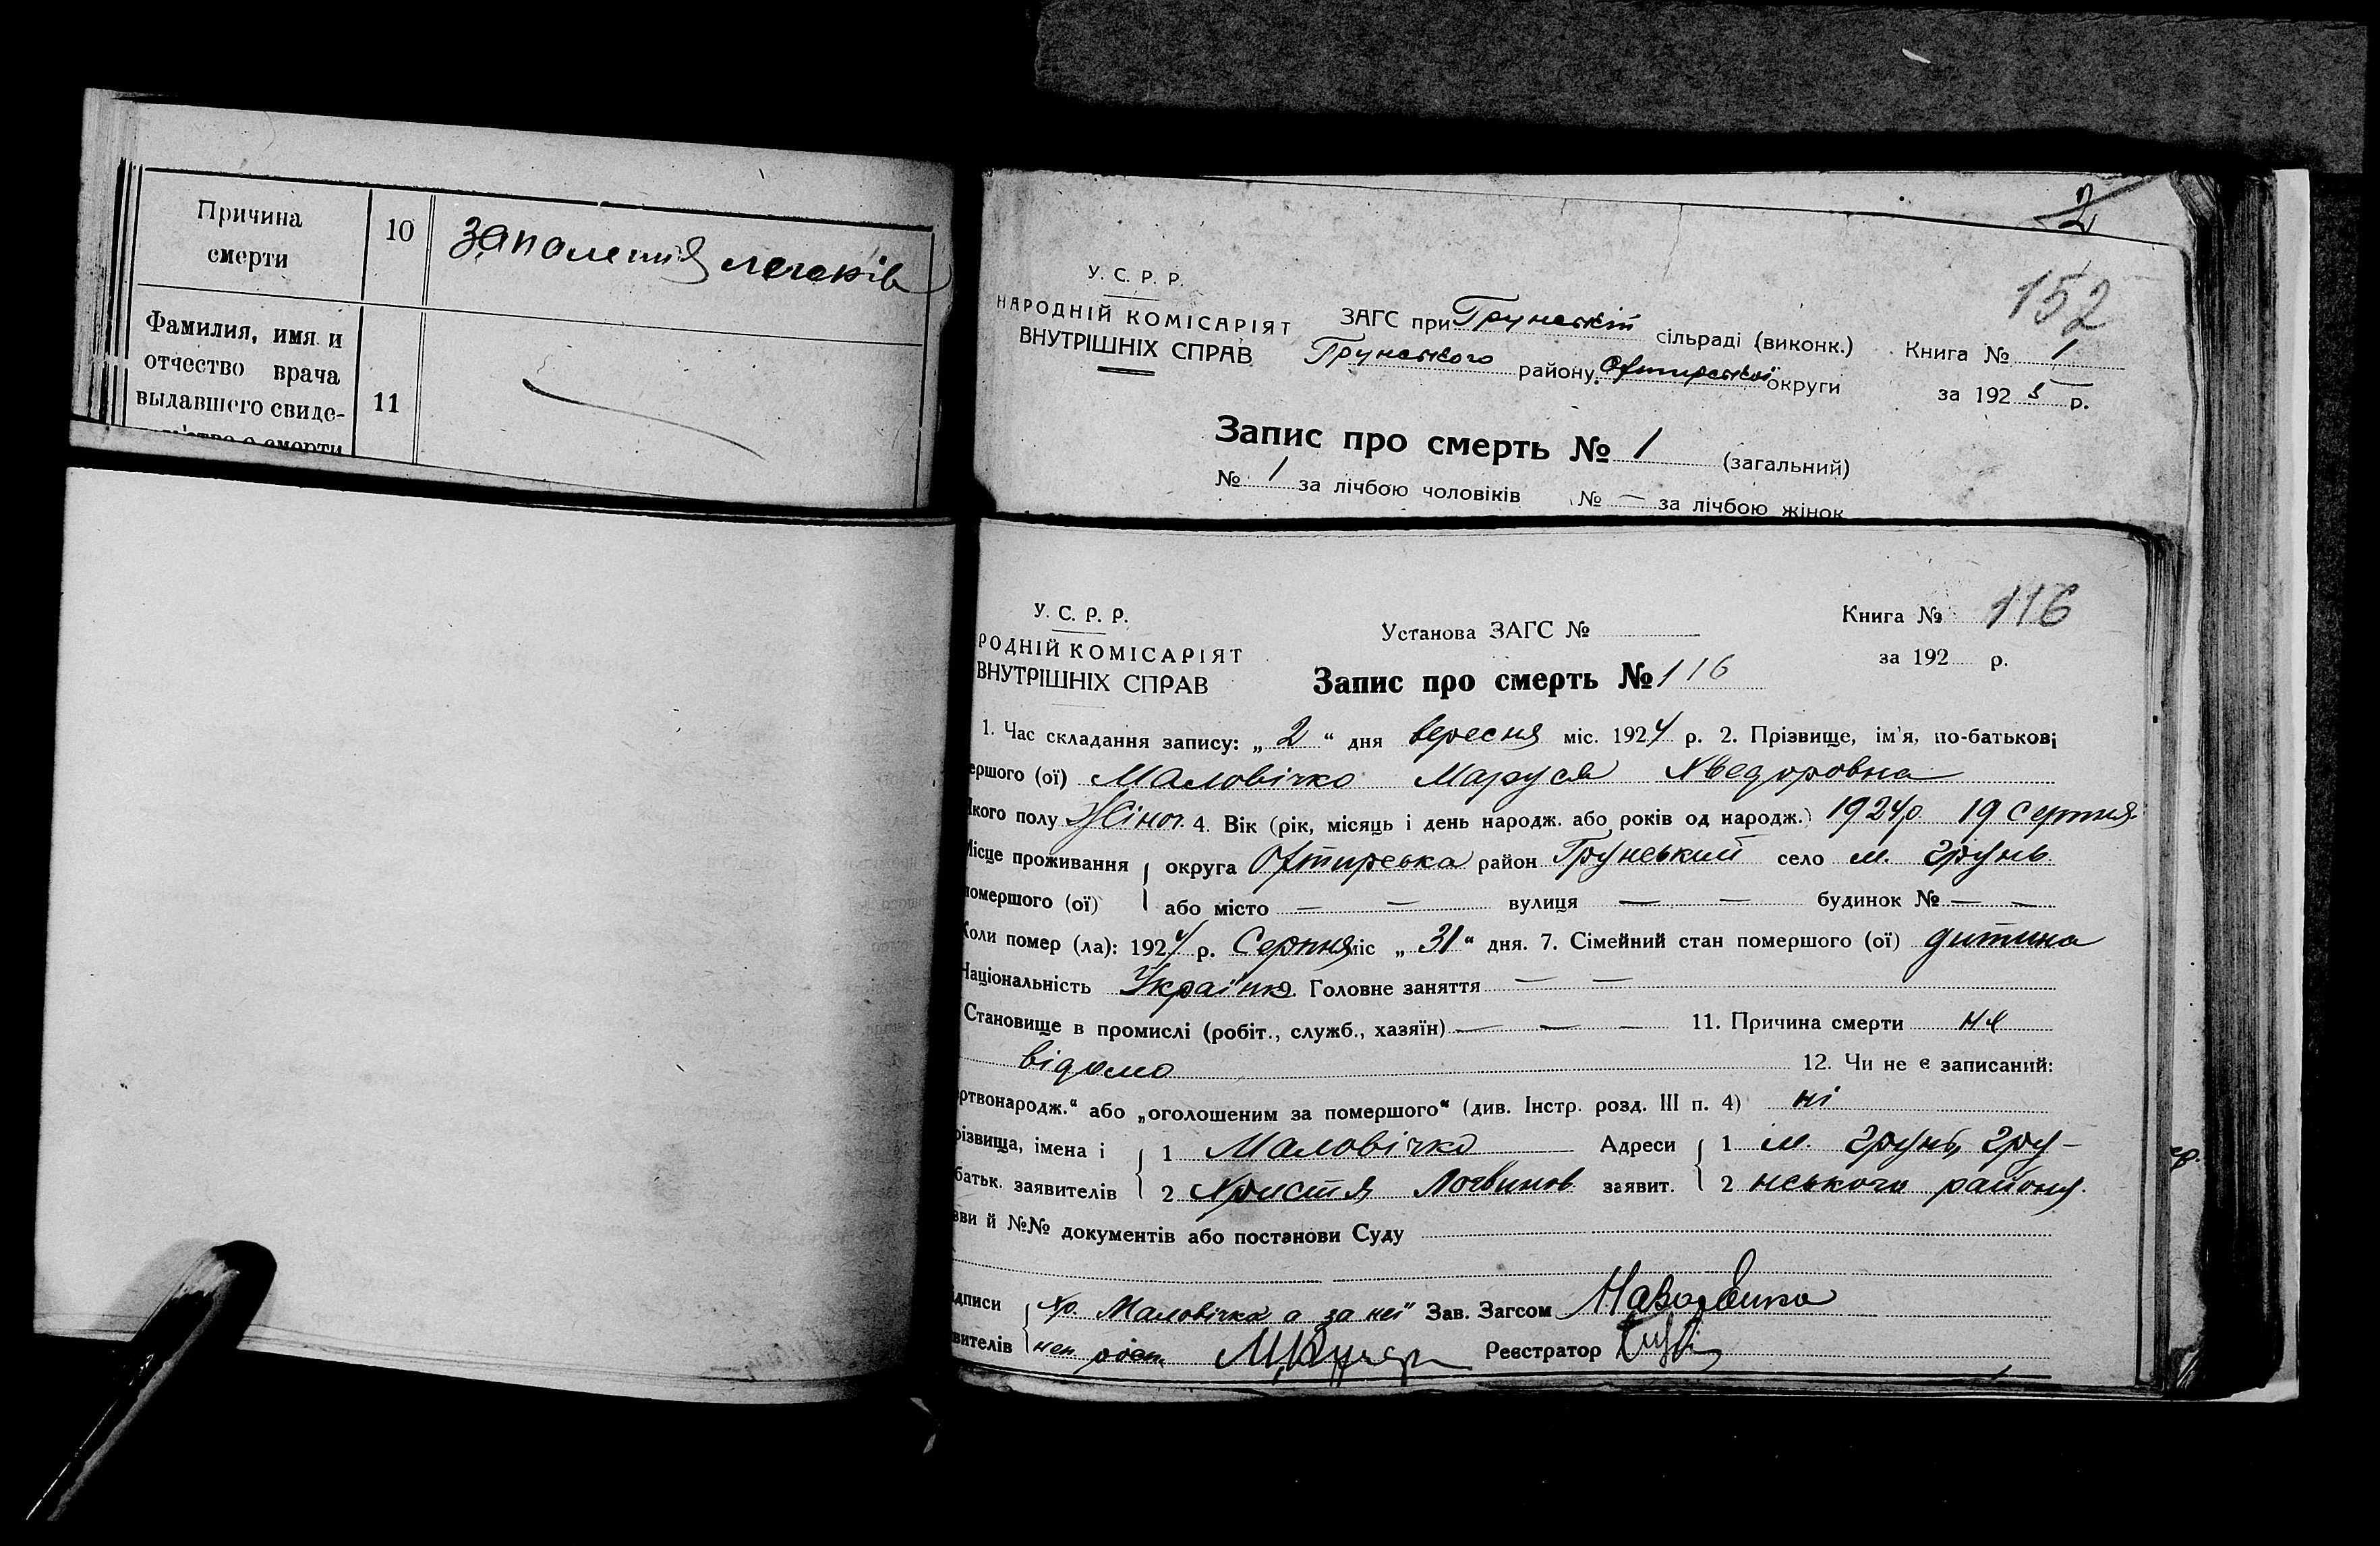 Причина
смерти
10
запаления легенів
Фамилия, имя и
отчество врача
выдавшего свиде-
о смерти
11
2
152
У. С. Р. Р.
НАРОДНІЙ КОМІСАРІЯТ
ВНУТРІШНІХ СПРАВ
ЗАГС при Грунській сільраді (виконк.)
Грунського району Охтирської округи
Книга № 1
за 1925 р.
Запис про смерть № 1 (загальний)
№ 1 за лічбою чоловіків № — за лічбою жінок
У. С. Р. Р.
РОДНІЙ КОМІСАРІЯТ
ВНУТРІШНІХ СПРАВ
Установа ЗАГС №
Книга № 116
за 192 р.
Запис про смерть № 116
1. Час складання запису: „ 2 “ дня вересня міс. 1924 р. 2. Прізвище, ім'я, по-батькові
ершого (ої) Маловічко Маруся Хведоровна
якого полу Жіноч. 4. Вік (рік, місяць і день народж. або років од народж.) 1924 р. 19 Серпня
Місце проживання округа Охтирська район Грунський село м. Грунь
помершого (ої) або місто — — вулиця — — будинок № — —
Коли помер (ла): 1924 р. Серпня міс „ 31 “ дня. 7. Сімейний стан помершого (ої) дитина
Національність Українка Головне заняття — —
Становище в промислі (робіт., служб., хазяїн) — — — 11. Причина смерти не
відомо 12. Чи не є записаний:
ртвонародж.“ або „оголошеним за помершого“ (див. Інстр. розд. III п. 4) ні
різвища, імена і 1 Маловічко Адреси 1 м. Грунь, Гру-
батьк. заявителів 2 Христя Логвинов. заявит. 2 нського району.
зви й №№ документів або постанови Суду
дписи Хр. Маловічка а за неї Зав. Загсом
вителів неп Реєстратор